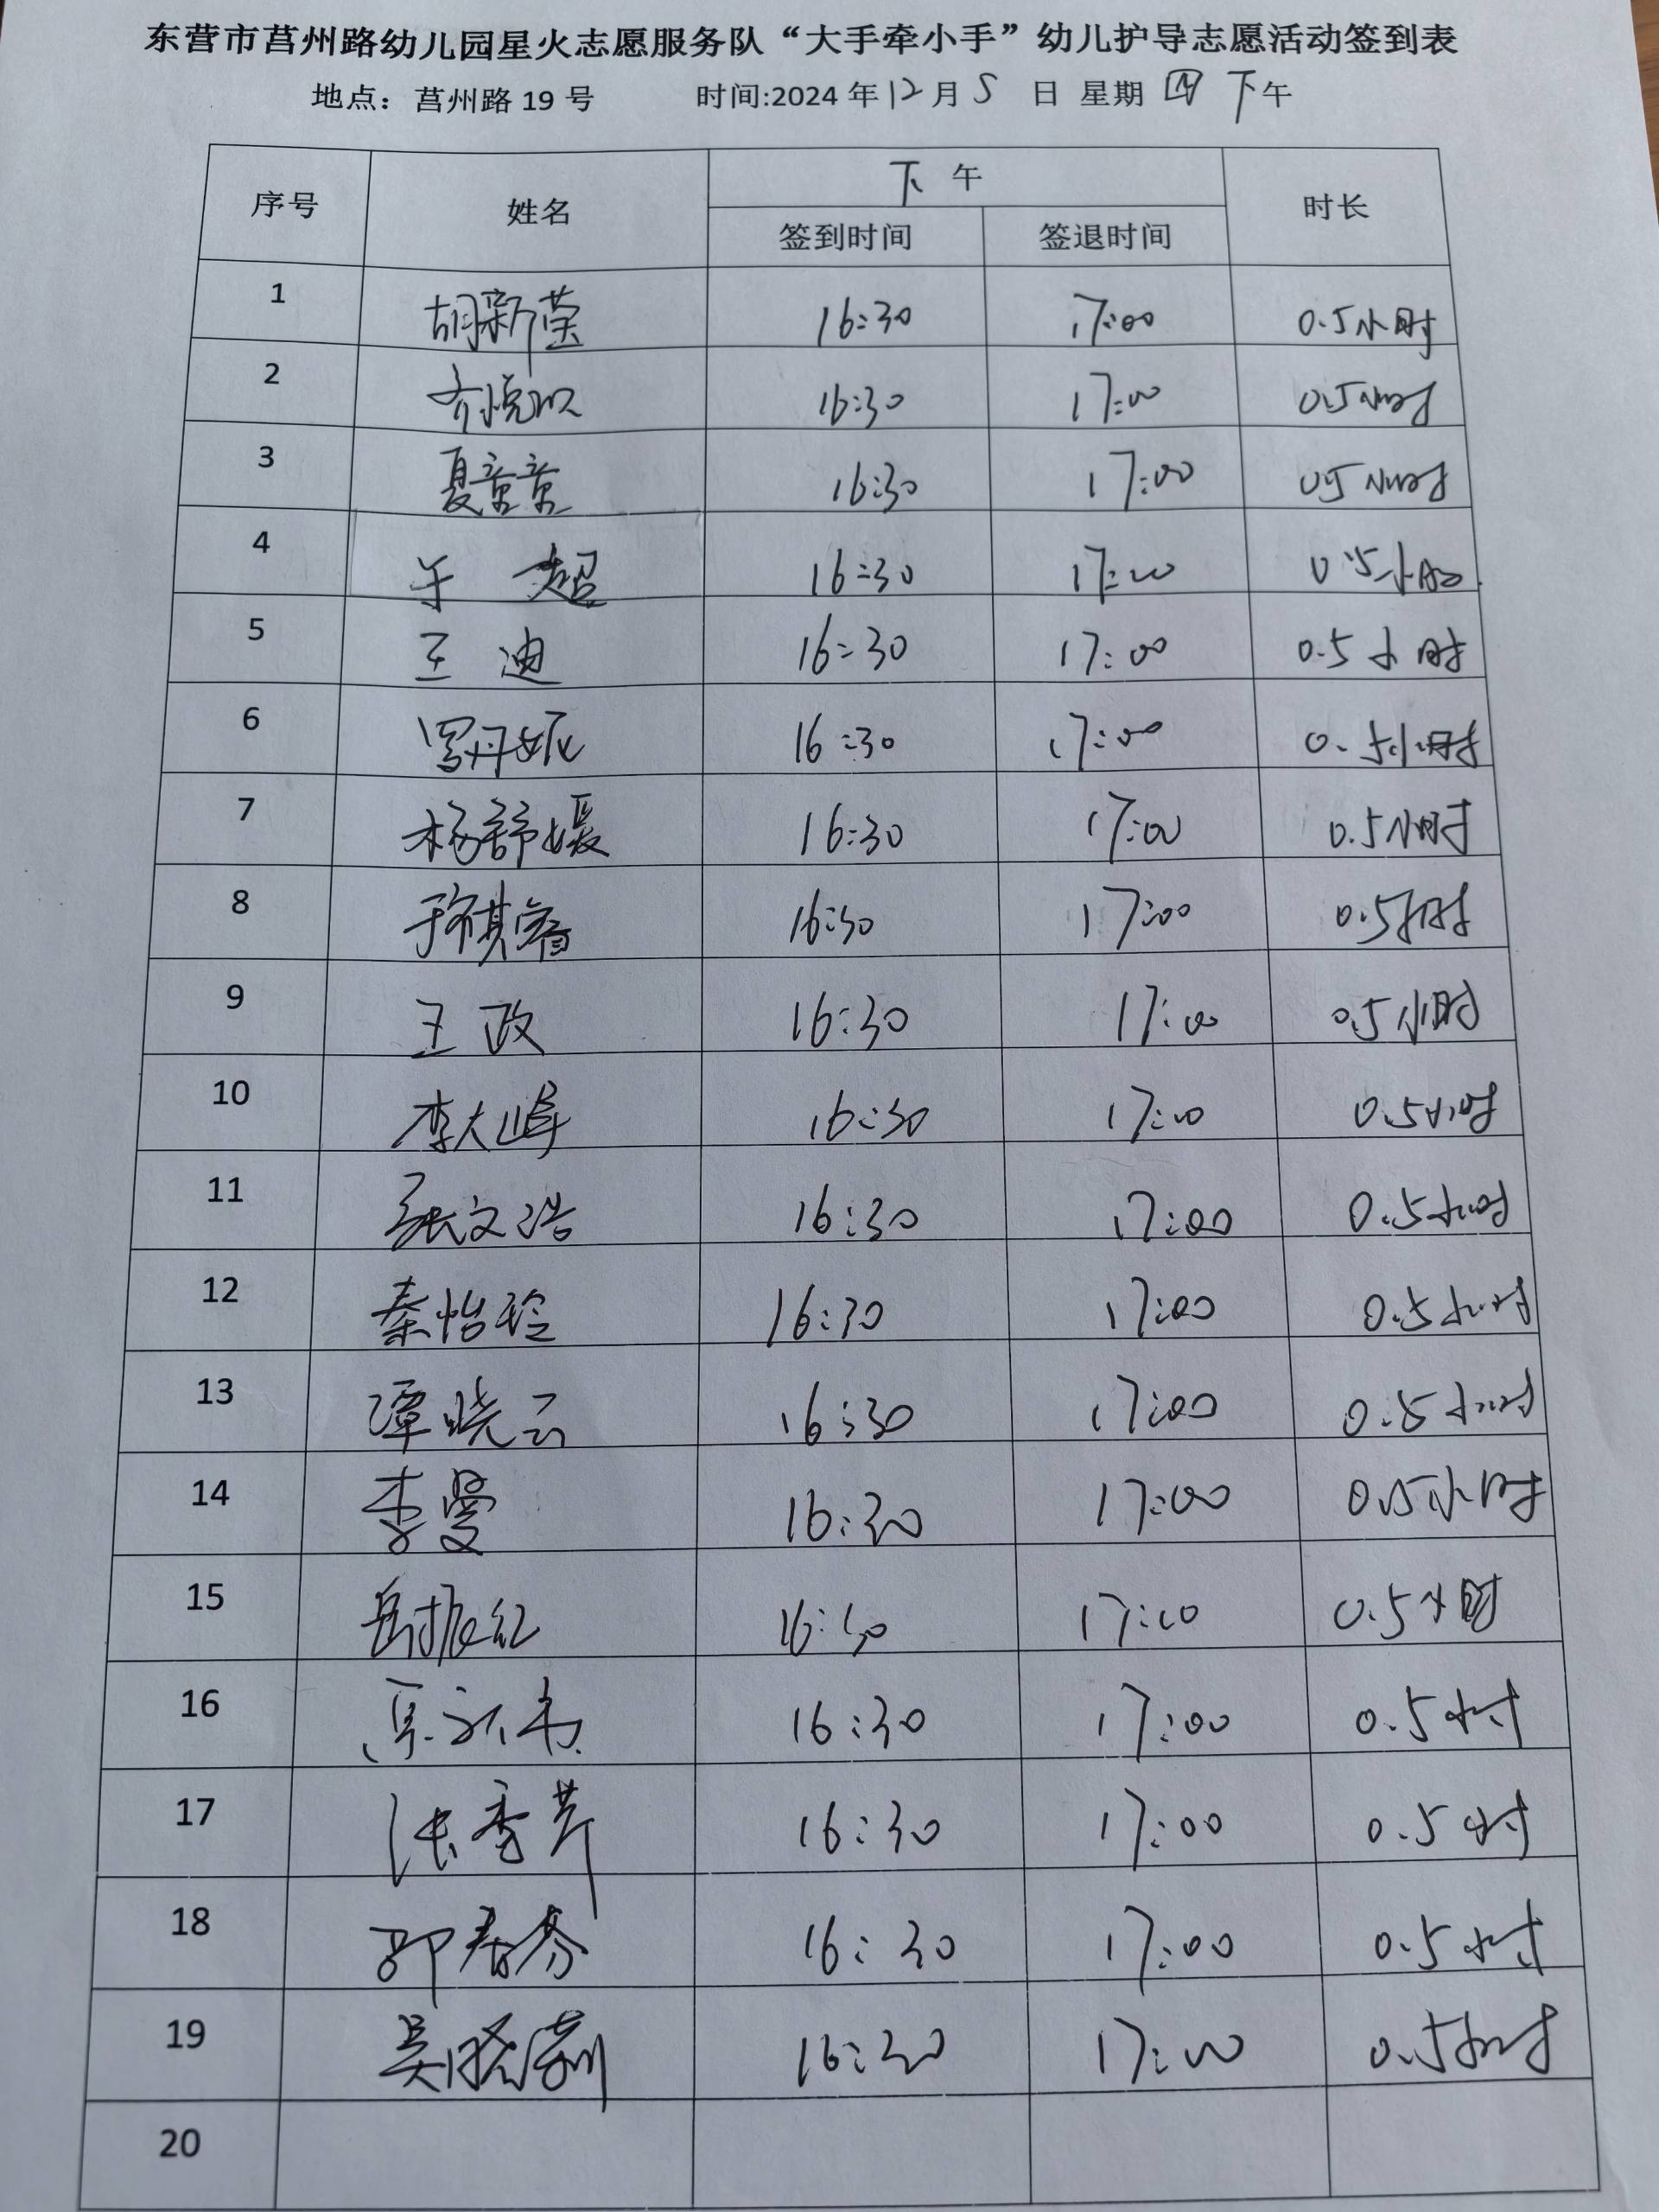 东营市莒州路幼儿园星火志愿服务队“大手牵小手”幼儿护导志愿活动签到表
地点：莒州路 19 号 时间:2024 年 12 月 5 日 星期 四 下午
序号 姓名 下 午 时长
签到时间 签退时间
1 胡新莹 16:30 17:00 0.5小时
2 齐悦 16:30 17:00 0.5小时
3 夏童童 16:30 17:00 0.5小时
4 于 超 16:30 17:00 0.5小时
5 王 迪 16:30 17:00 0.5小时
6 罗丹妮 16:30 17:00 0.5小时
7 杨舒媛 16:30 17:00 0.5小时
8 16:30 17:00 0.5小时
9 王 政 16:30 17:00 0.5小时
10 李大峰 16:30 17:00 0.5小时
11 张文浩 16:30 17:00 0.5小时
12 秦怡玲 16:30 17:00 0.5小时
13 谭晓云 16:30 17:00 0.5小时
14 李曼 16:30 17:00 0.5小时
15 岳振红 16:30 17:00 0.5小时
16 16:30 17:00 0.5小时
17 张香芹 16:30 17:00 0.5小时
18 郭春芬 16:30 17:00 0.5小时
19 吴晓莉 16:30 17:00 0.5小时
20